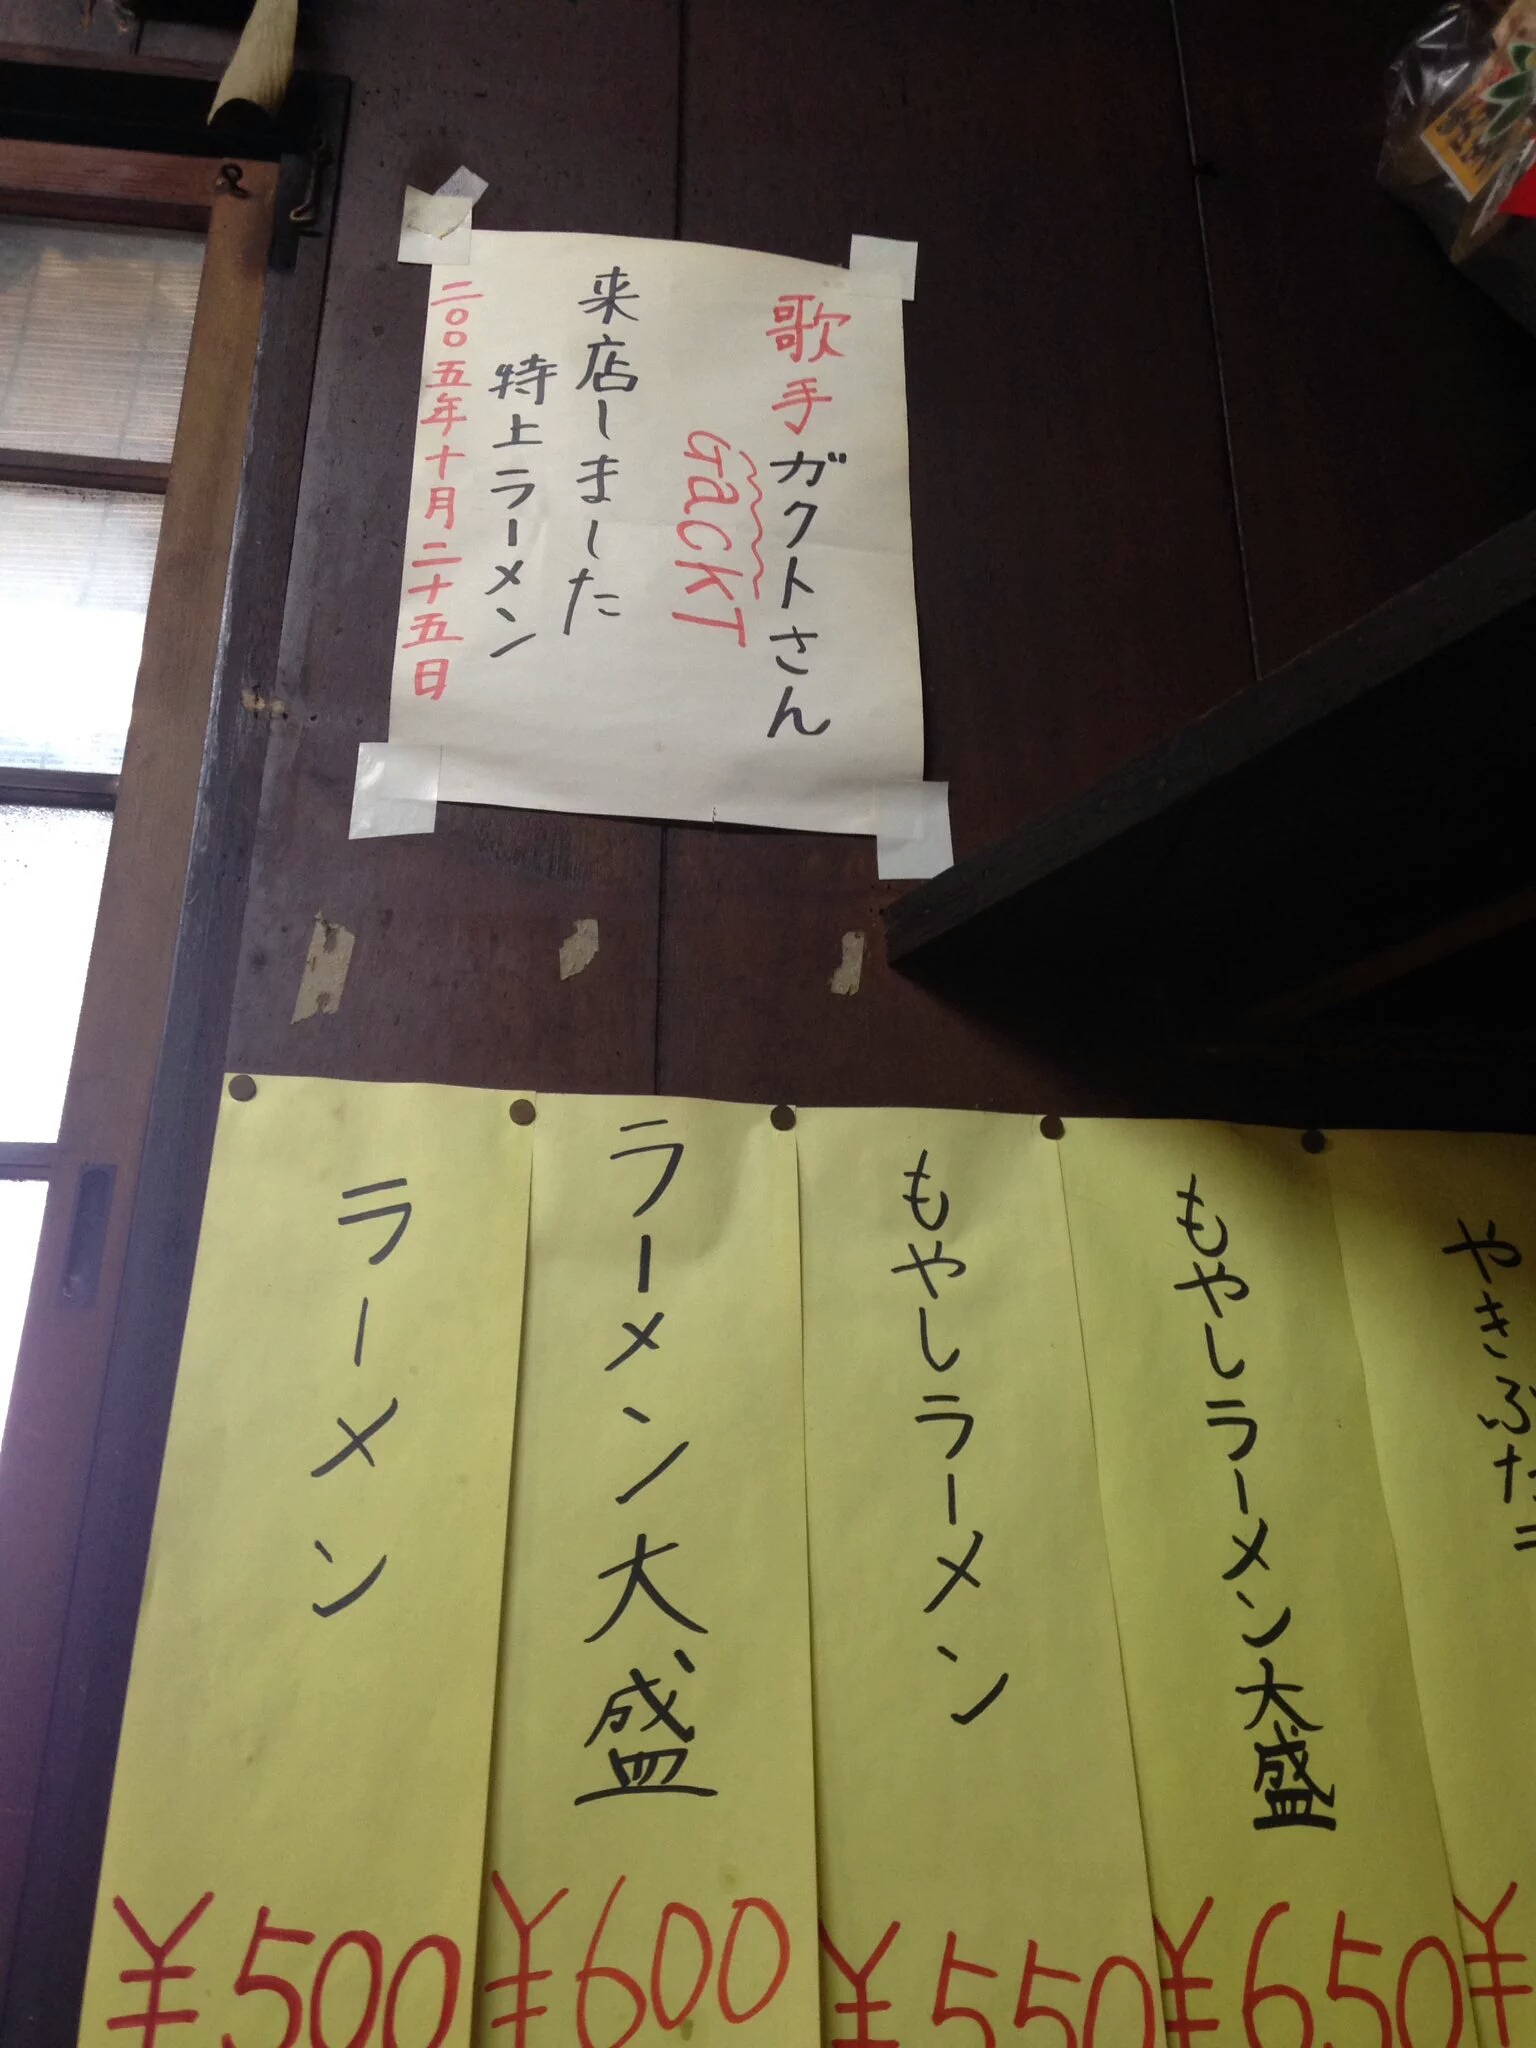 歌手ガクトさん
GacKT
来店しました
特上ラーメン
二〇〇五年十月二十五日
ラーメン
¥500
ラーメン大盛
¥600
もやしラーメン
¥550
もやしラーメン大盛
¥650
やきぶた
¥